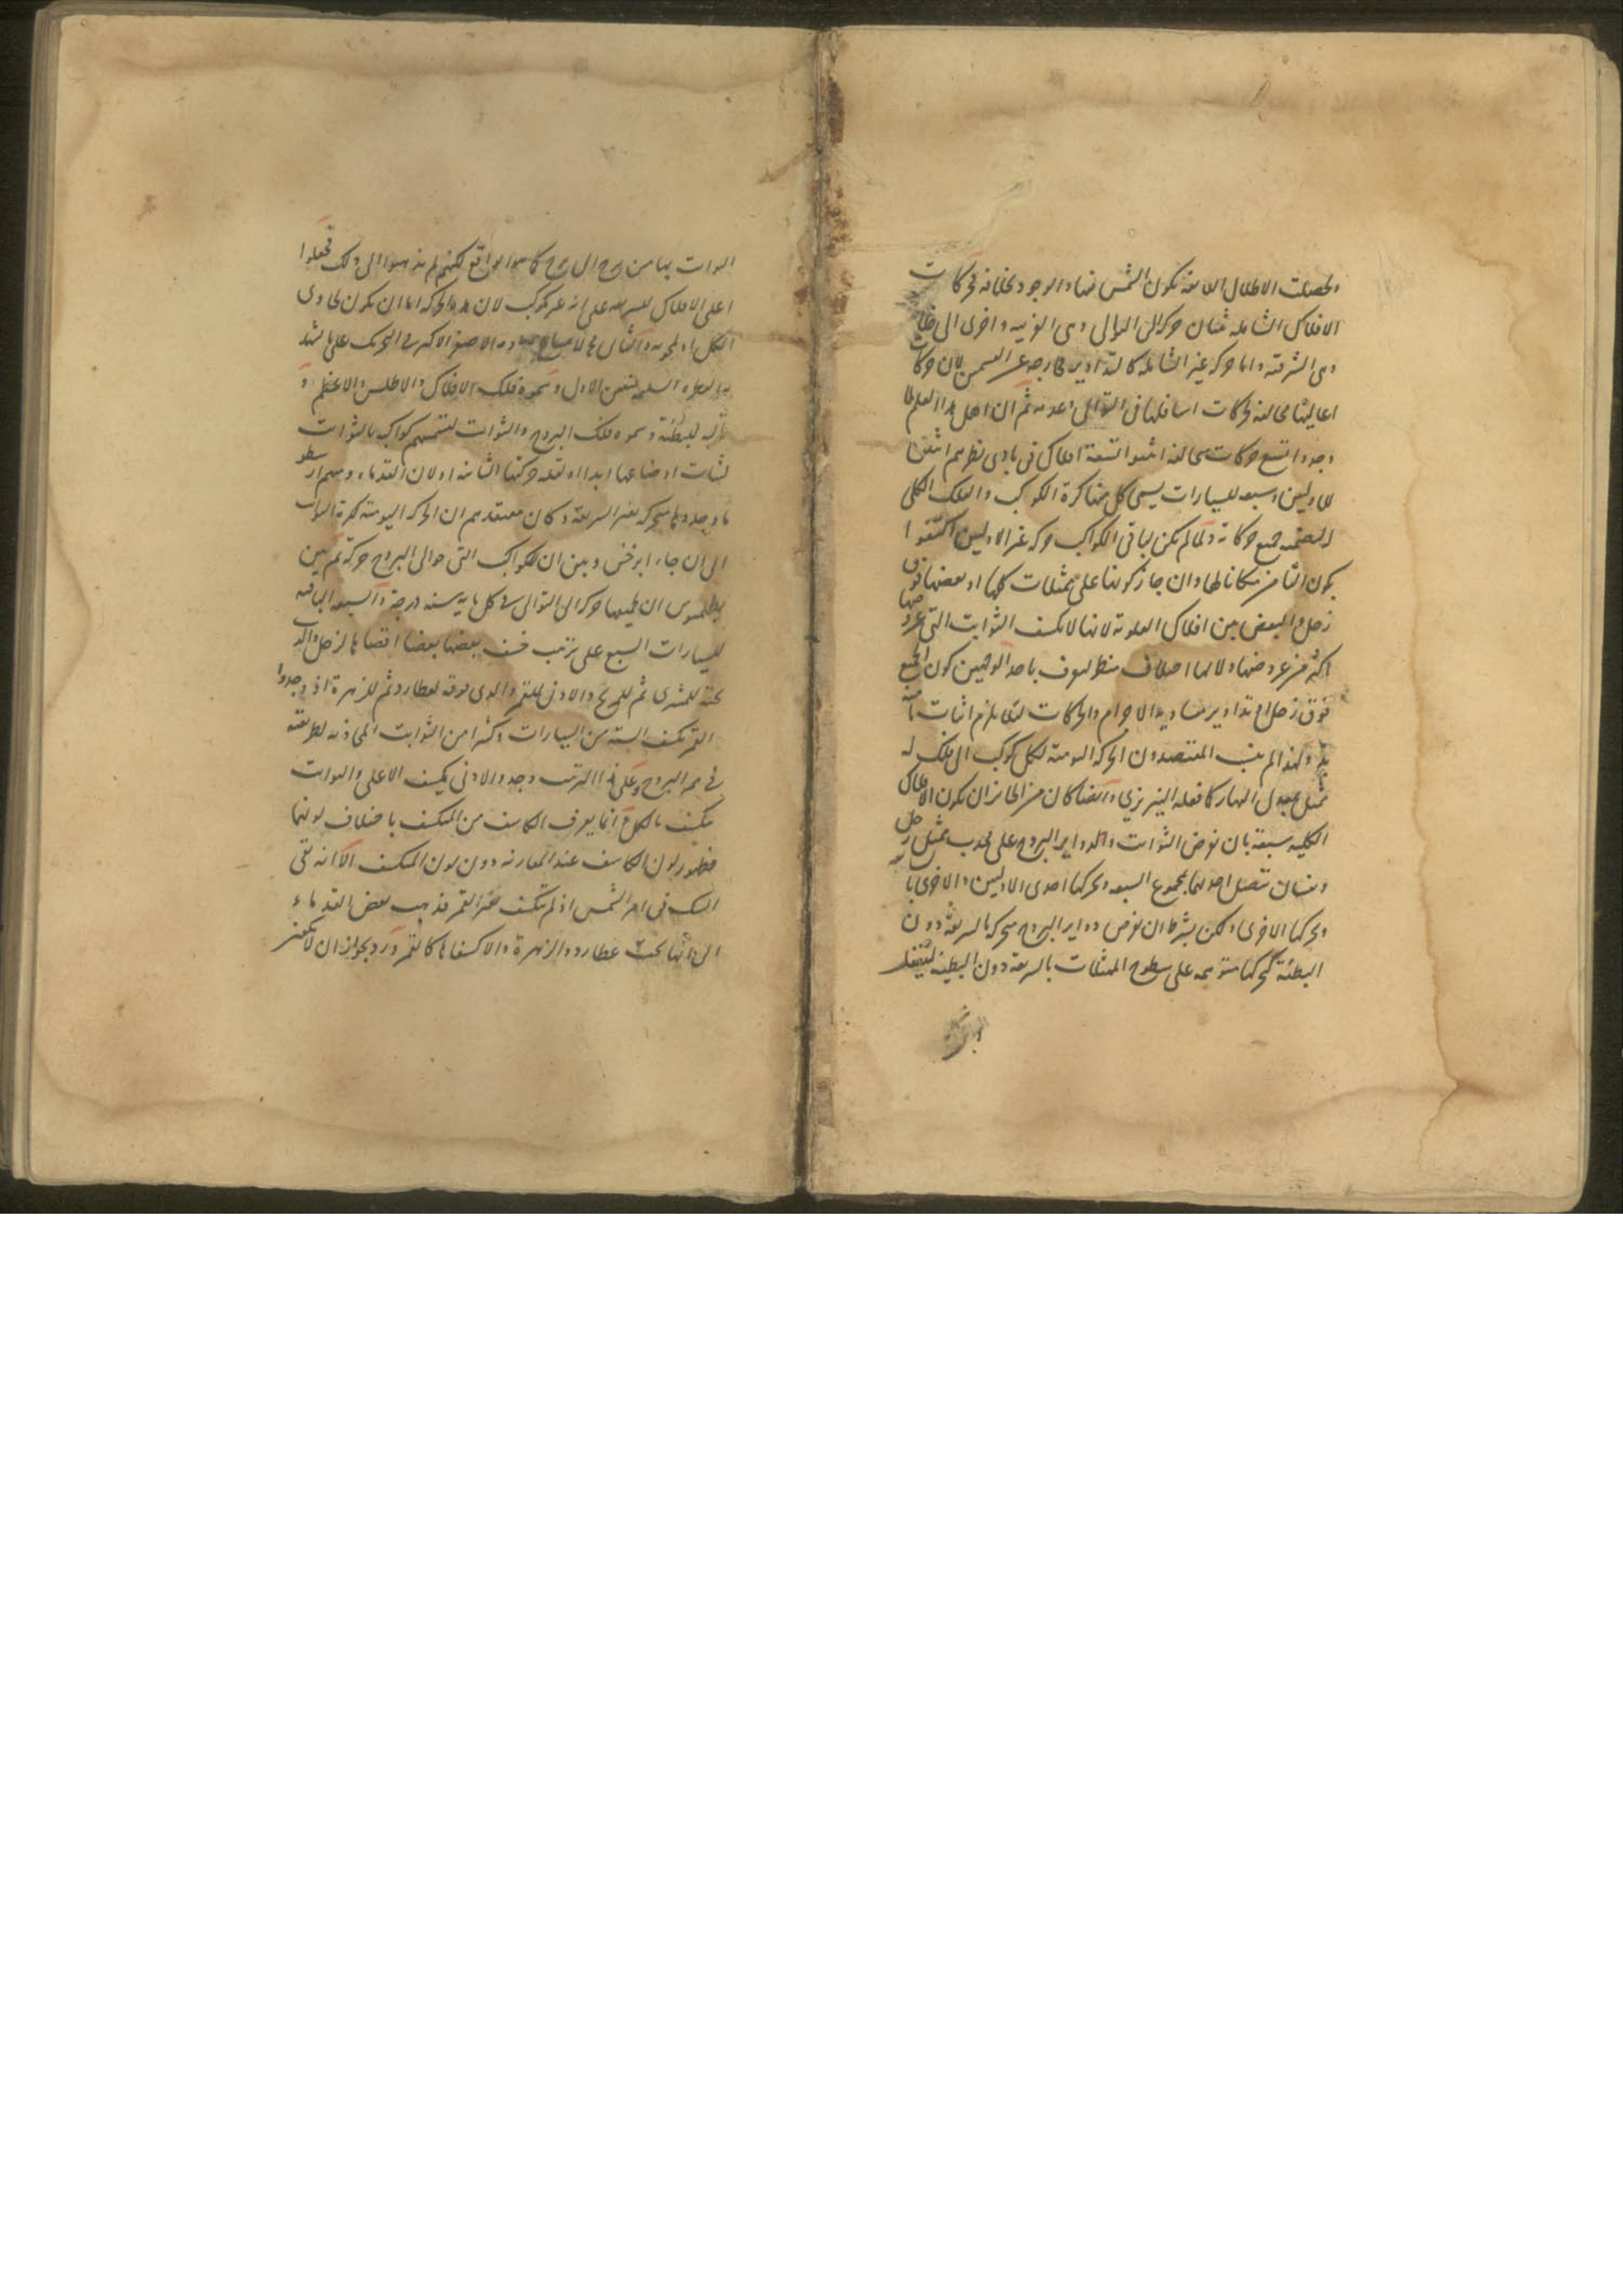 ولحصلت الاظلال اللايقة بكون الشمس فيها والوجود بخلافه فحركات
الافلاك الشاملة ثنتان حركة الى التوالى وهى الغربية واخرى الى خلافه
وهى الشرقية واما حركة غير الشاملة كالتداوير فخارجة عن القسمين لان حركات
اعاليها مخالفة لحركات اسافلها فى التوالى وعدمه ثم ان اهل هذا العلم لما
وجدوا تسع حركات مختلفة اثبتوا تسعة افلاك فى بادى نظرهم اثنان
للاوليين وسبعة للسيارات يسمى كل منها كرة الكوكب والفلك الكلى
لتضمنه جميع حركاته ولما لم يكن لباقى الكواكب حركة غير الاوليين اكتفوا
بكون الثامن مكانا لها وان جاز كونها على ممثلات كلها او بعضها فوق
زحل والبعض بين افلاك العلوية لانها لا تكسف الثوابت التى عروضها
اكثر من عروضها ولا لها اختلاف منظر ليعرف باحد الوجهين كون الجميع
فوق زحل او تداوير متساوية الاجرام والحركات
ولهذا لم ينسب المقتصدون الحركة اليومية لكل كوكب الى فلك له
مثل معدل النهار كما فعله النيريزى وايضا كان من الجائز ان يكون الافلاك
الكلية سبعة بان نفرض الثوابت ودواير البروج على محدب ممثل زحل
ونفسان تتصل احديهما بمجموع السبعة وتحركها احدى الاوليين والاخرى با
وتحركها الاخرى ولكن بشرط ان نفرض دواير البروج متحركة بالسريعة دون
البطيئة كحركتها متوهمة على سطوح الممثلات بالسريعة دون البطيئة لينتقل
الثوابت بها من برج الى برج كما هو الواقع لكنهم لم يذهبوا الى ذلك فجعلوا
اعلى الافلاك للسريعة على انه غير مكوكب لان هذه الحركة اما ان يكون لحاوى
الكل او لمحويه
لتعين الاول وسموه فلك الافلاك والاطلس والاعظم و
تاليه للبطيئة وسموه فلك البروج والثوابت لتسميتهم كواكبه بالثوابت
لثبات اوضاعها ابدا او لقلة حركتها الثانية او لان القدماء ومنهم ارسطو
ما وجدوها متحركة بغير السريعة وكان معتقدهم ان الحركة اليومية لكرة الثوابت
الى ان جاء ابرخس وبين ان للكواكب التى حوالى البروج حركة ثم بين
بطلميوس ان لجميعها حركة الى التوالى فى كل ماية سنة درجة والسبعة الباقية
للسيارات السبع على ترتيب خسف بعضها بعضا اقصاها لزحل والذى
تحته للمشترى ثم للمريخ والادنى للقمر والذى فوقه لعطارد ثم للزهرة اذ وجدوا
القمر يكسف الستة من السيارات وكثيرا من الثوابت المحاذية لطريقته
فى ممر البروج وعلى هذا الترتيب وجدوا الادنى يكسف الاعلى والثوابت
تنكسف بالكل وانما يعرف الكاسف من المنكسف باختلاف لونهما
فظهور لون الكاسف عند المقارنة دون لون المنكسف الا انه بقى
الشك فى امر الشمس اذ لم تكسف غير القمر فذهب بعض القدماء
الى انها تحت عطارد والزهرة والا كسفاها كالقمر ورد بجواز ان لا تكون